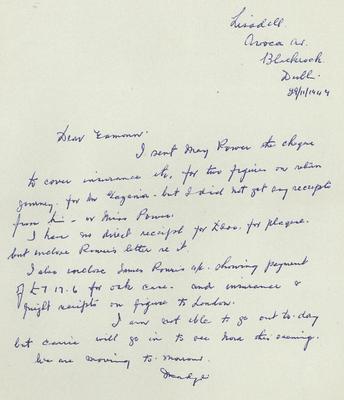 Lissadell
Avoca Av.
Blackrock
Dublin.
29/11/1944
Dear Eamonn.
I sent May Power the cheque
to cover insurance etc. for two figures on return
journey. for Mr but I did not get any receipts
from him - or Miss Power.
I have no direct receipt for £200. for plaque.
but enclose Power's letter re it
I also enclose James Powers a/c. showing payment
of £7.17.6 for oak case. and insurance &
freight receipts on figure to London.
I am not able to go out to-day
but Carrie will go in to see Nora this evening.
We are moving to-morrow.
Madge